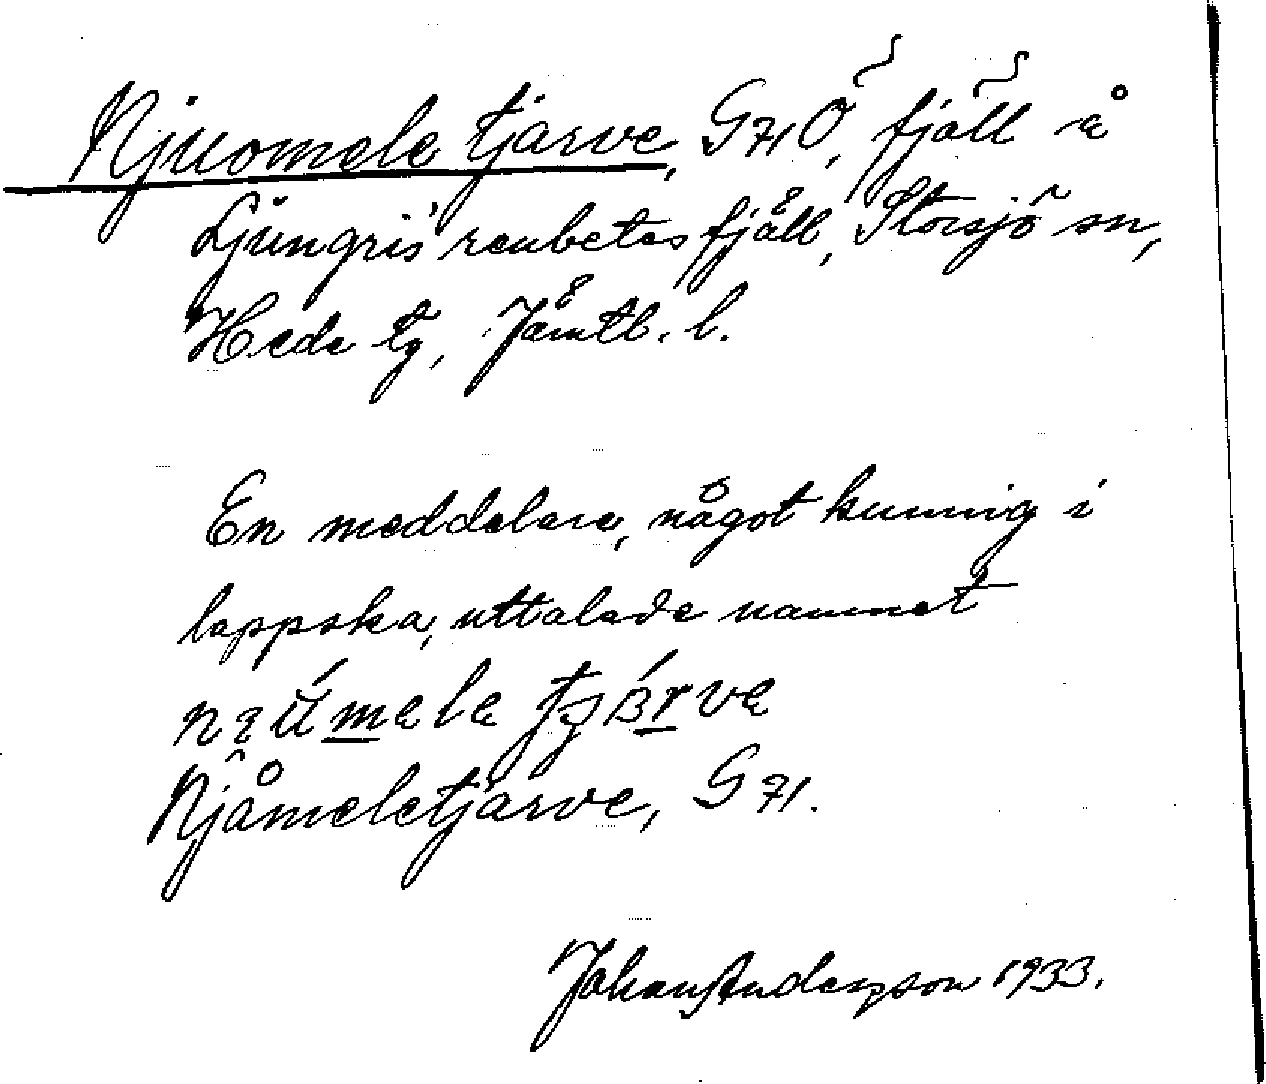 Njuomele tjarve, G71Ö, fjäll å
Ljungris' renbetesfjäll, Storsjö sn,
Hede tg, Jämtl. l.
En meddelare, något kunnig i
lappska, uttalade namnet
Njåmeletjarve, G71.
Johan Anderzson 1933.